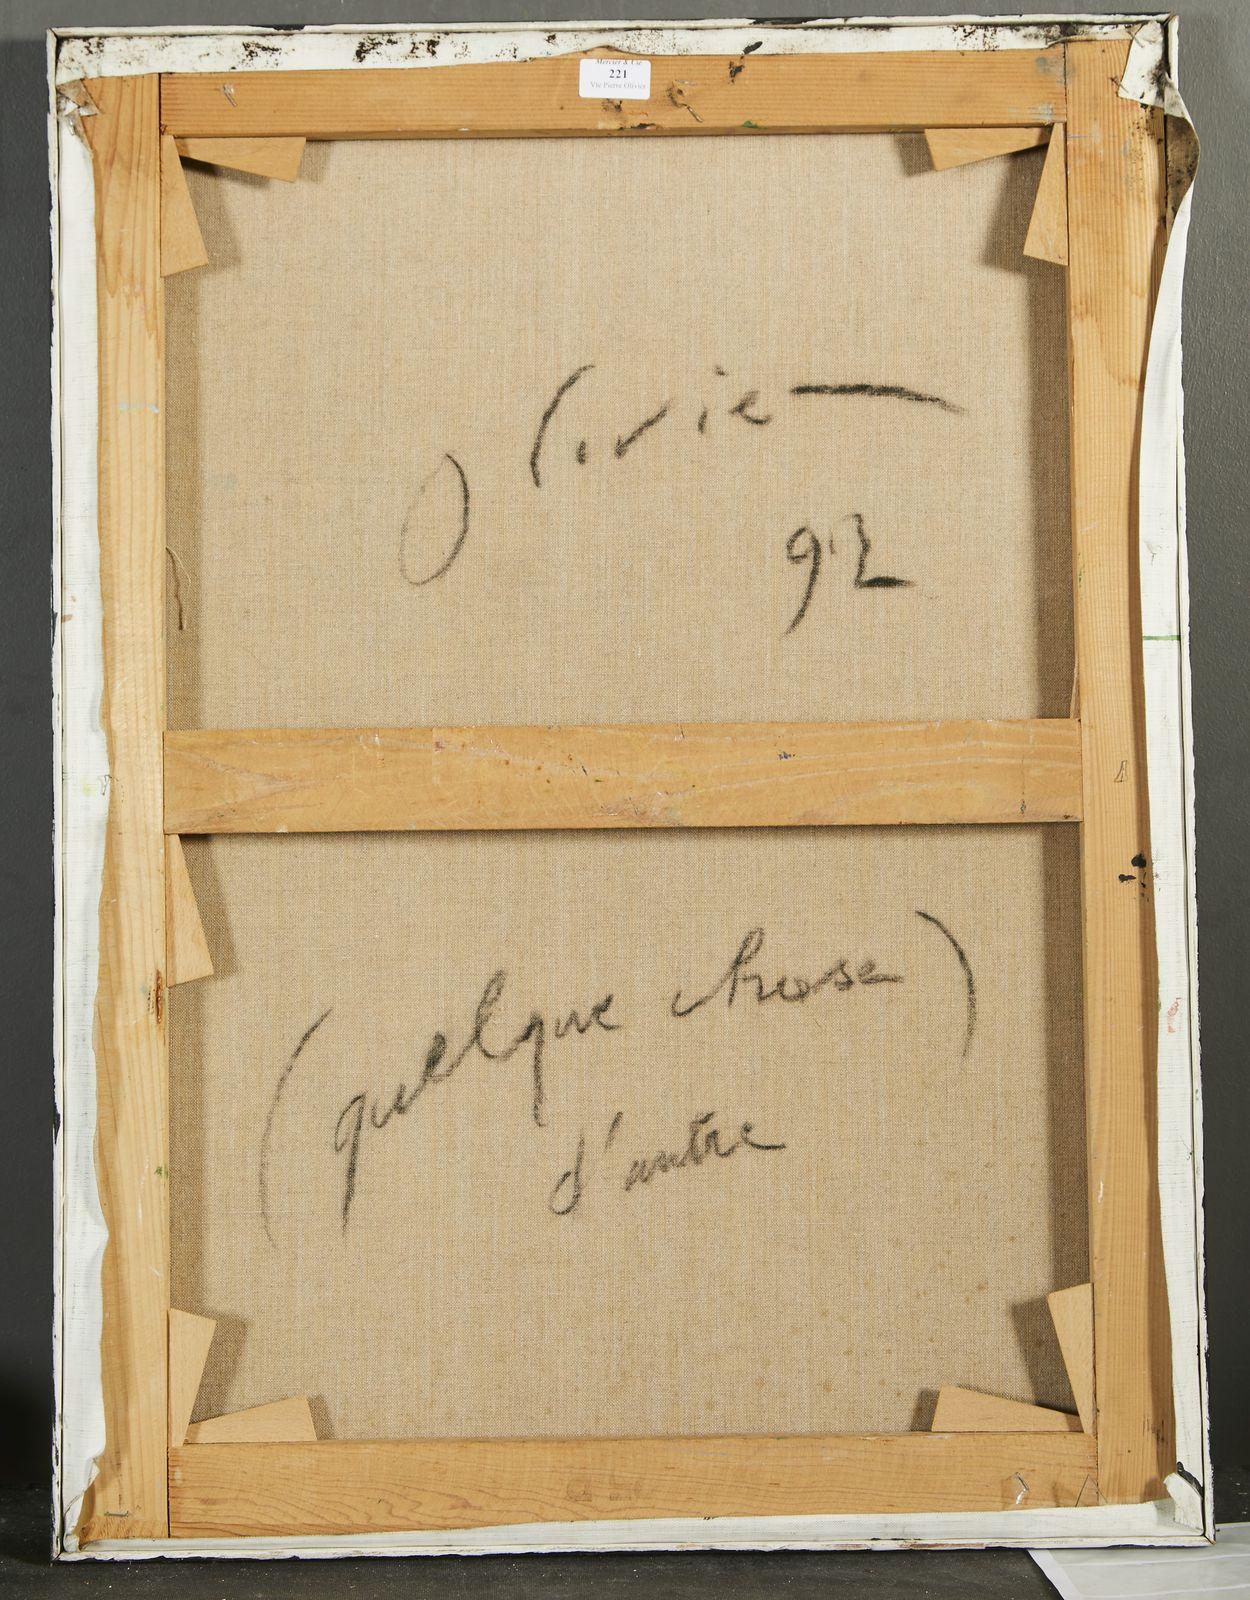 Mercier & Cie
221
Vte Pierre Olivier
Olivier
92
(quelque chose)
d'autre